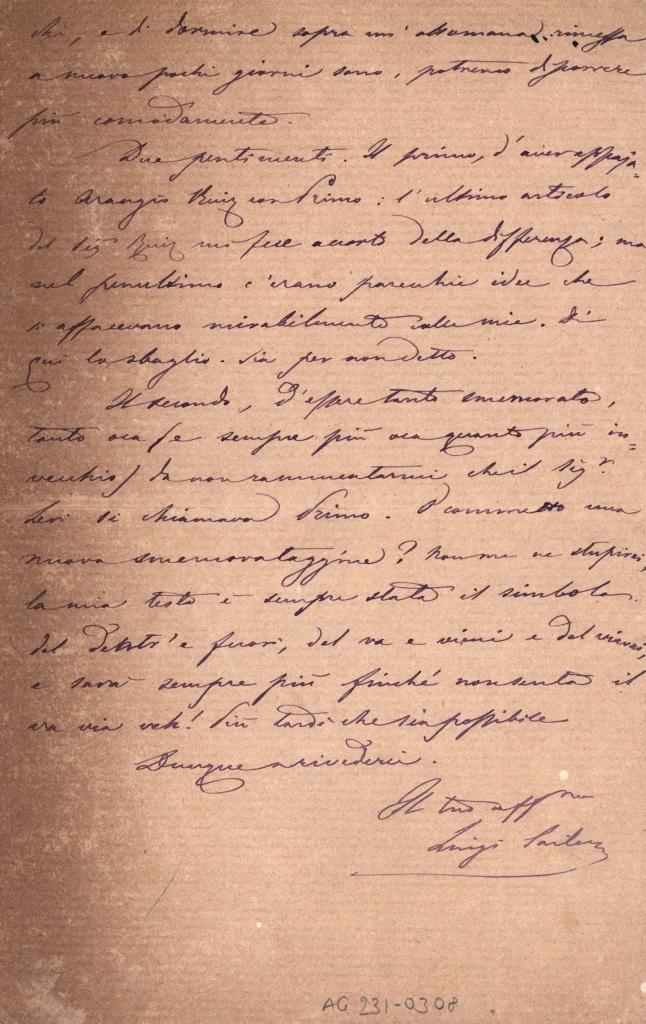 chi, e di dormire sopra un' ottomana rimessa
a nuovo pochi giorni sono, potremo disporre
più comodamente.
Due pentimenti. Il primo, d'aver appaja=
to Arangio Ruiz con Primo: l'ultimo articolo
del Sig Ruiz mi fece accorto della differenza; ma
nel penultimo c'erano parecchie idee che
s'affacevano mirabilmente colle mie. Di
qui lo sbaglio. Sia per non detto.
Il secondo, d'essere tanto smemorato,
tanto oca (e sempre più oca quanto più in=
vecchio) da non rammentarmi che il Sigr.
Levi si chiamava Primo. O commetto una
nuova smemorataggine? Non me ne stupirei;
la mia testa è sempre stata il simbolo
del dentr'e fuori, del va e vieni e del viavai,
e sarà sempre più finché non senta il
va via veh! Più tardi che sia possibile
Dunque a rivederci.
Il tuo affmo
Luigi Sailer
AG 231-0308